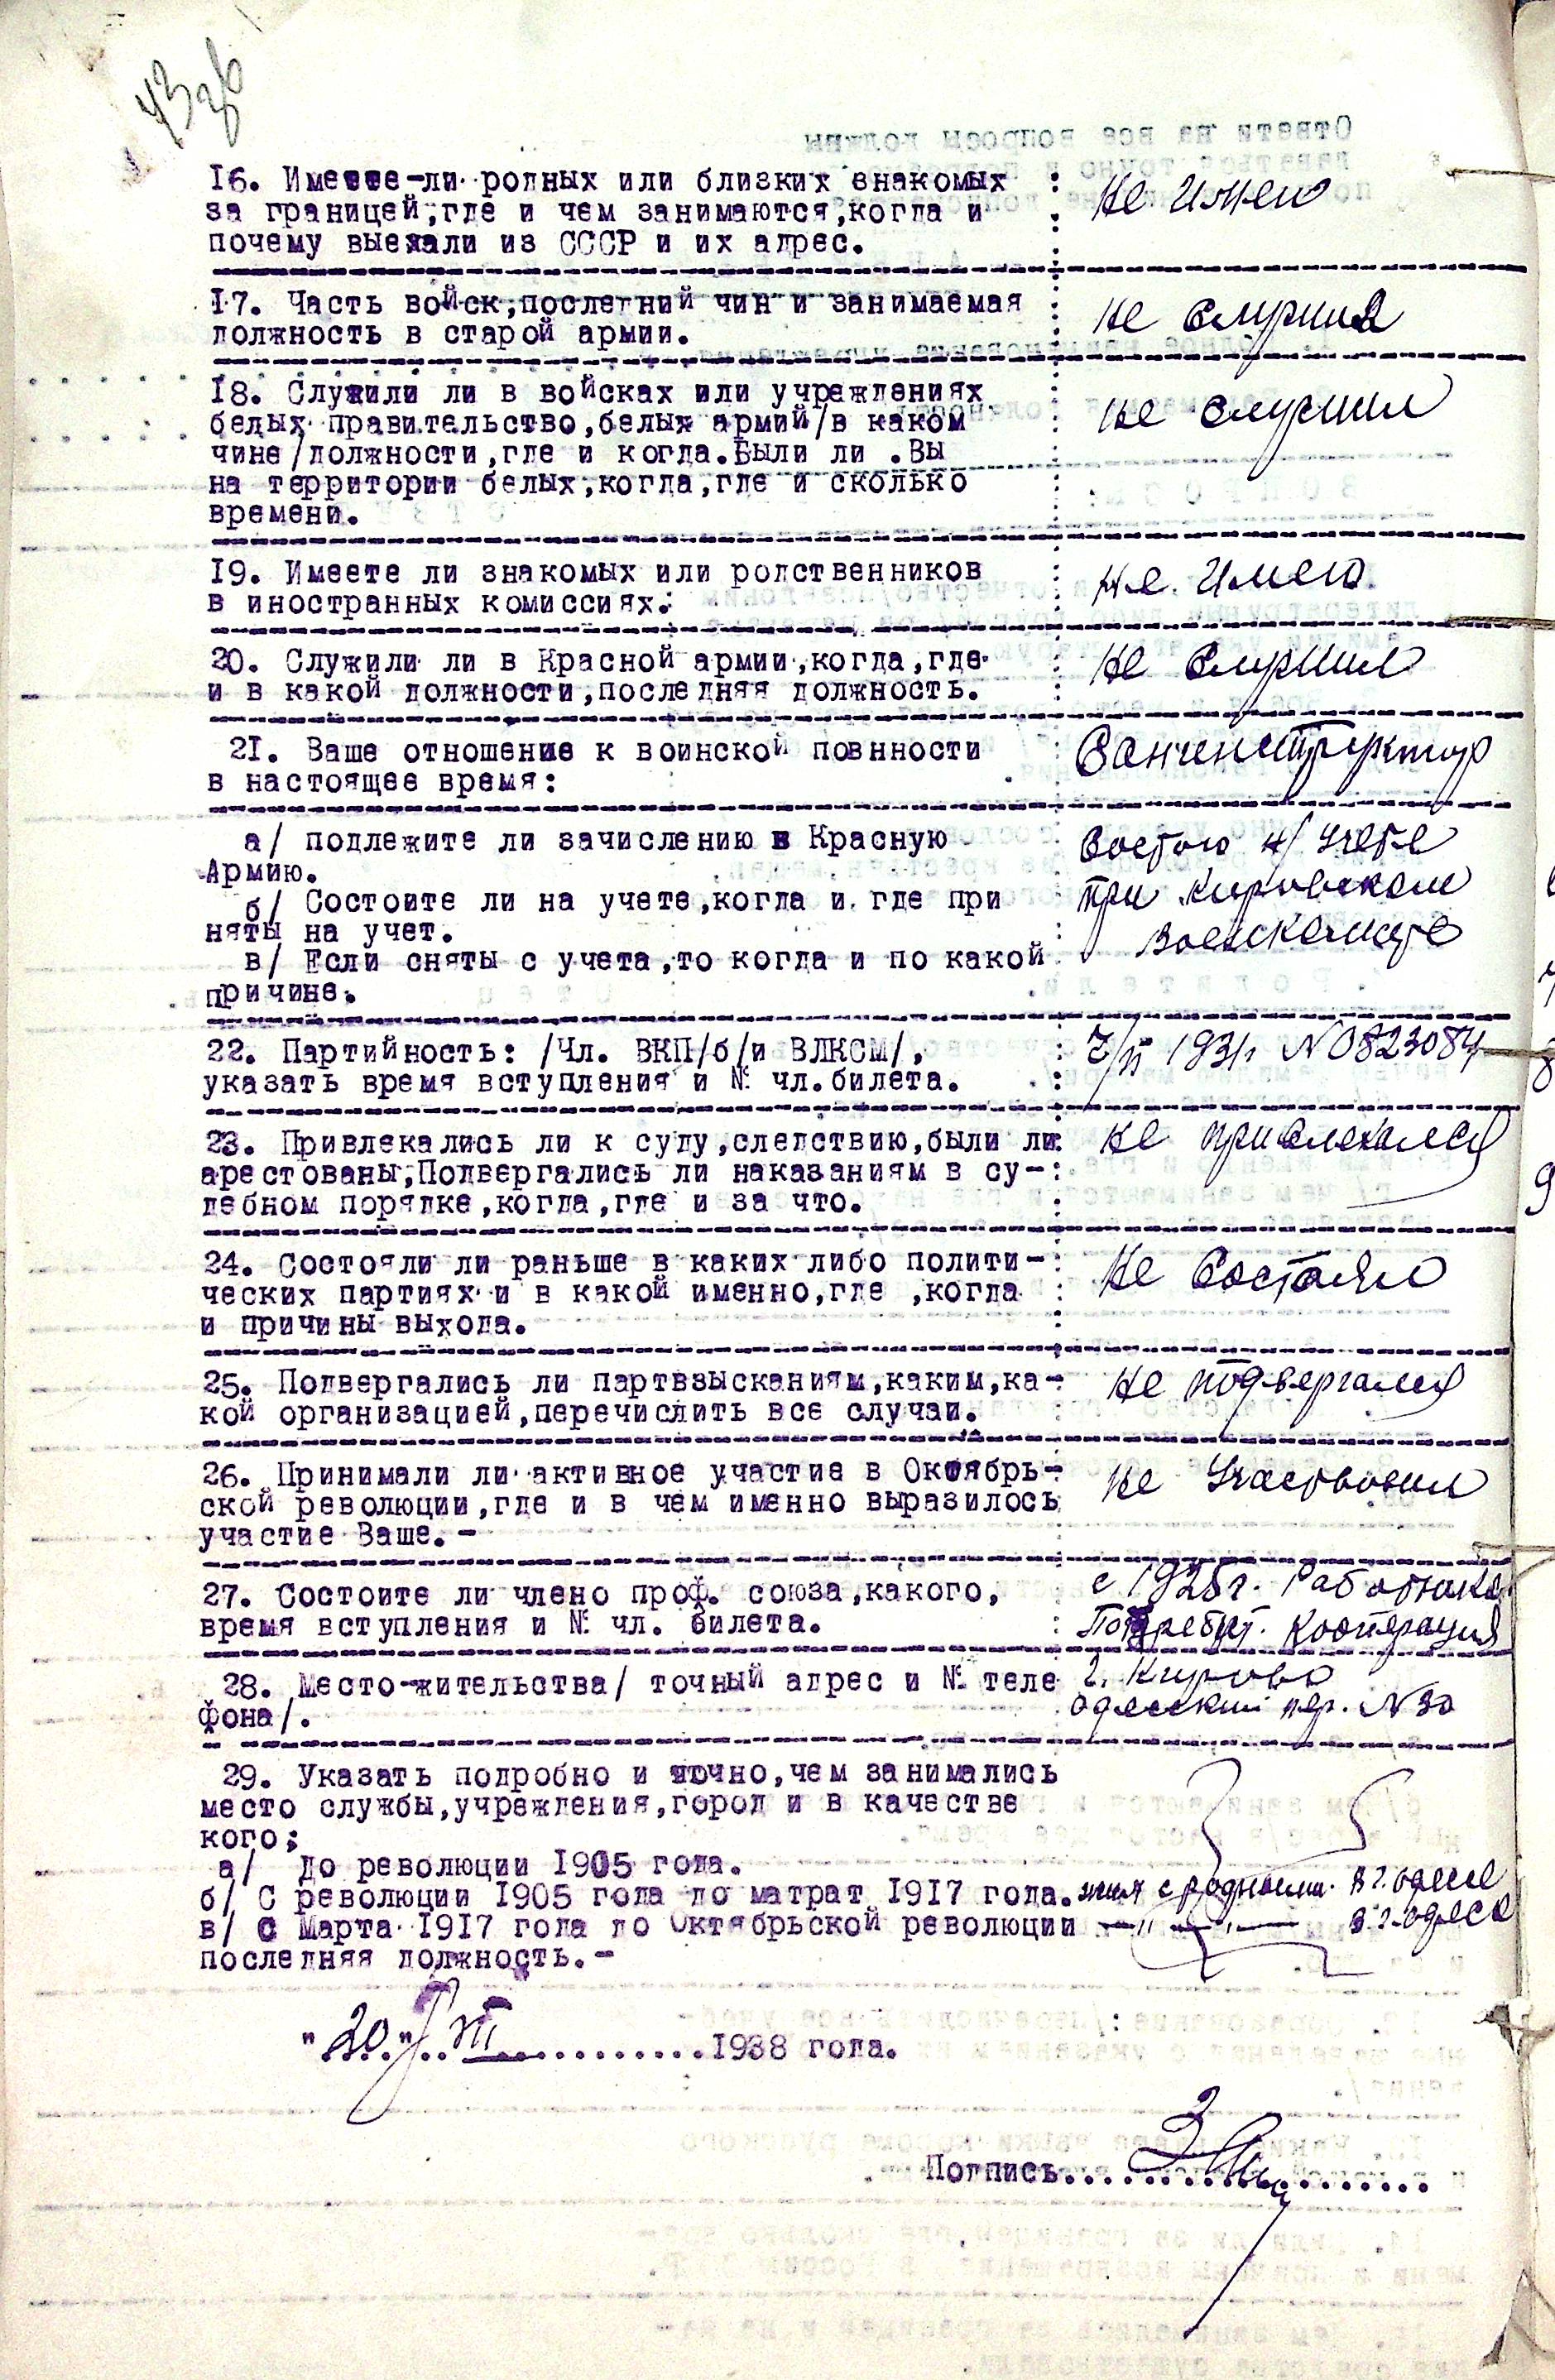 43 об
16. Имеете-ли родных или близких знакомых : не имею
за границей, где и чем занимаются, когда и
почему выехали из СССР и их адрес.
17. Часть войск, последний чин и занимаемая : не служил
должность в старой армии.
18. Служили ли в войсках или учреждениях : не служил
белых правительство, белых армий/в каком
чине/должности, где и когда. Были ли .Вы
на территории белых, когда, где и сколько
времени.
19. Имеете ли знакомых или родственников : не имею
в иностранных комиссиях.
20. Служили ли в Красной армии, когда, где : не служил
и в какой должности, последняя должность.
21. Ваше отношение к воинской повнности : Санинструктор
в настоящее время:
а/ подлежите ли зачислению в Красную Состою н/учете
Армию. при Кировском
б/ Состоите ли на учете, когда и где при Военкомате
няты на учет.
в/ Если сняты с учета, то когда и по какой
причине.
22. Партийность: /Чл. ВКП/б/и ВЛКСМ/, : Ч/п 1931г. N0823084
указать время вступления и № чл.билета.
23. Привлекались ли к суду, следствию, были ли не привлекался
арестованы, Подвергались ли наказаниям в су-:
дебном порядке, когда, где и за что.
24. Состояли ли раньше в каких либо полити-: Не Состоял
ческих партиях и в какой именно, где ,когда
и причины выхода.
25. Подвергались ли партвзысканиям, каким, ка-: не подвергался
кой организацией, перечислить все случаи.
26. Принимали ли активное участие в Октябрь-: не Участвовал
ской революции, где и в чем именно выразилось
участие Ваше.-
27. Состоите ли члено проф. союза, какого, с 1925г. Работника
время вступления и № чл. билета. : Потребит. Кооперация
28. Место-жительства/ точный адрес и № теле г. Кирово
фона/. Одесский пер. N 30
29. Указать подробно и точно, чем занимались
место службы, учреждения, город и в качестве
кого;
а/ До революции 1905 года.
б/ С революции 1905 года до матрат 1917 года. жил с родными в г. Одессе
в/ С Марта 1917 года до Октябрьской революции —"— —"— в г. Одессе
последняя должность.-
"20" III 1938 года.
Подпись